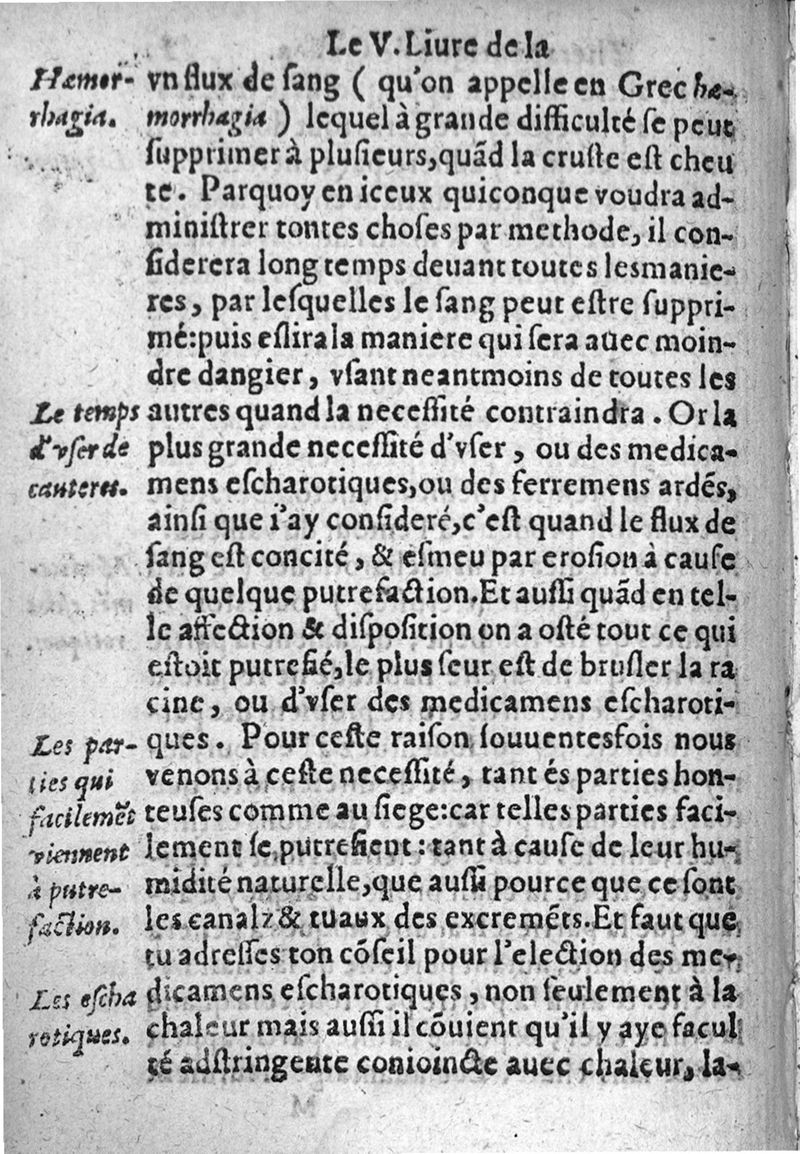 Le V. Liure de la
Hæmor-
rhagia.
vn flux de ſang ( qu'on appelle en Grec hæ-
morrhagia ) lequel à grande difficulté ſe peut
ſupprimer à pluſieurs, quãd la cruſte eſt cheu
te. Parquoy en iceux quiconque voudra ad-
miniſtrer tontes choſes par methode, il con-
ſiderera long temps deuant toutes lesmanie-
res, par leſquelles le ſang peut eſtre ſuppri-
mé: puis eslira la maniere qui ſera auec moin-
dre dangier, vſant neantmoins de toutes les
Le temps
d'vſer de
cauteres.
autres quand la neceſſité contraindra. Or la
plus grande neceſſité d'vſer, ou des medica-
mens eſcharotiques, ou des ferremens ardẽs,
ainſi que i'ay conſideré, c'eſt quand le flux de
ſang eſt concité, & eſmeu par eroſion à cauſe
de quelque putrefaction. Et auſſi quãd en tel-
le affection & diſpoſition on a oſté tout ce qui
eſtoit putrefié, le plus ſeur eſt de bruſler la ra
cine, ou d'vſer des medicamens eſcharoti-
Les par-
ties qui
facilemẽt
viennent
à putre-
faction.
ques. Pour ceſte raiſon ſouuentesfois nous
venons à ceſte neceſſité, tant és parties hon-
teuſes comme au ſiege: car telles parties faci-
lement ſe putrefient: tant à cauſe de leur hu-
midité naturelle, que auſſi pource que ce ſont
les canalz & tuaux des excremẽts. Et faut que
tu adreſſes ton cõſeil pour l'election des me-
Les eſcha
rotiques.
dicamens eſcharotiques, non ſeulement à la
chaleur mais auſſi il cõuient qu'il y aye facul
té adſtringente conioincte auec chaleur, la-
M